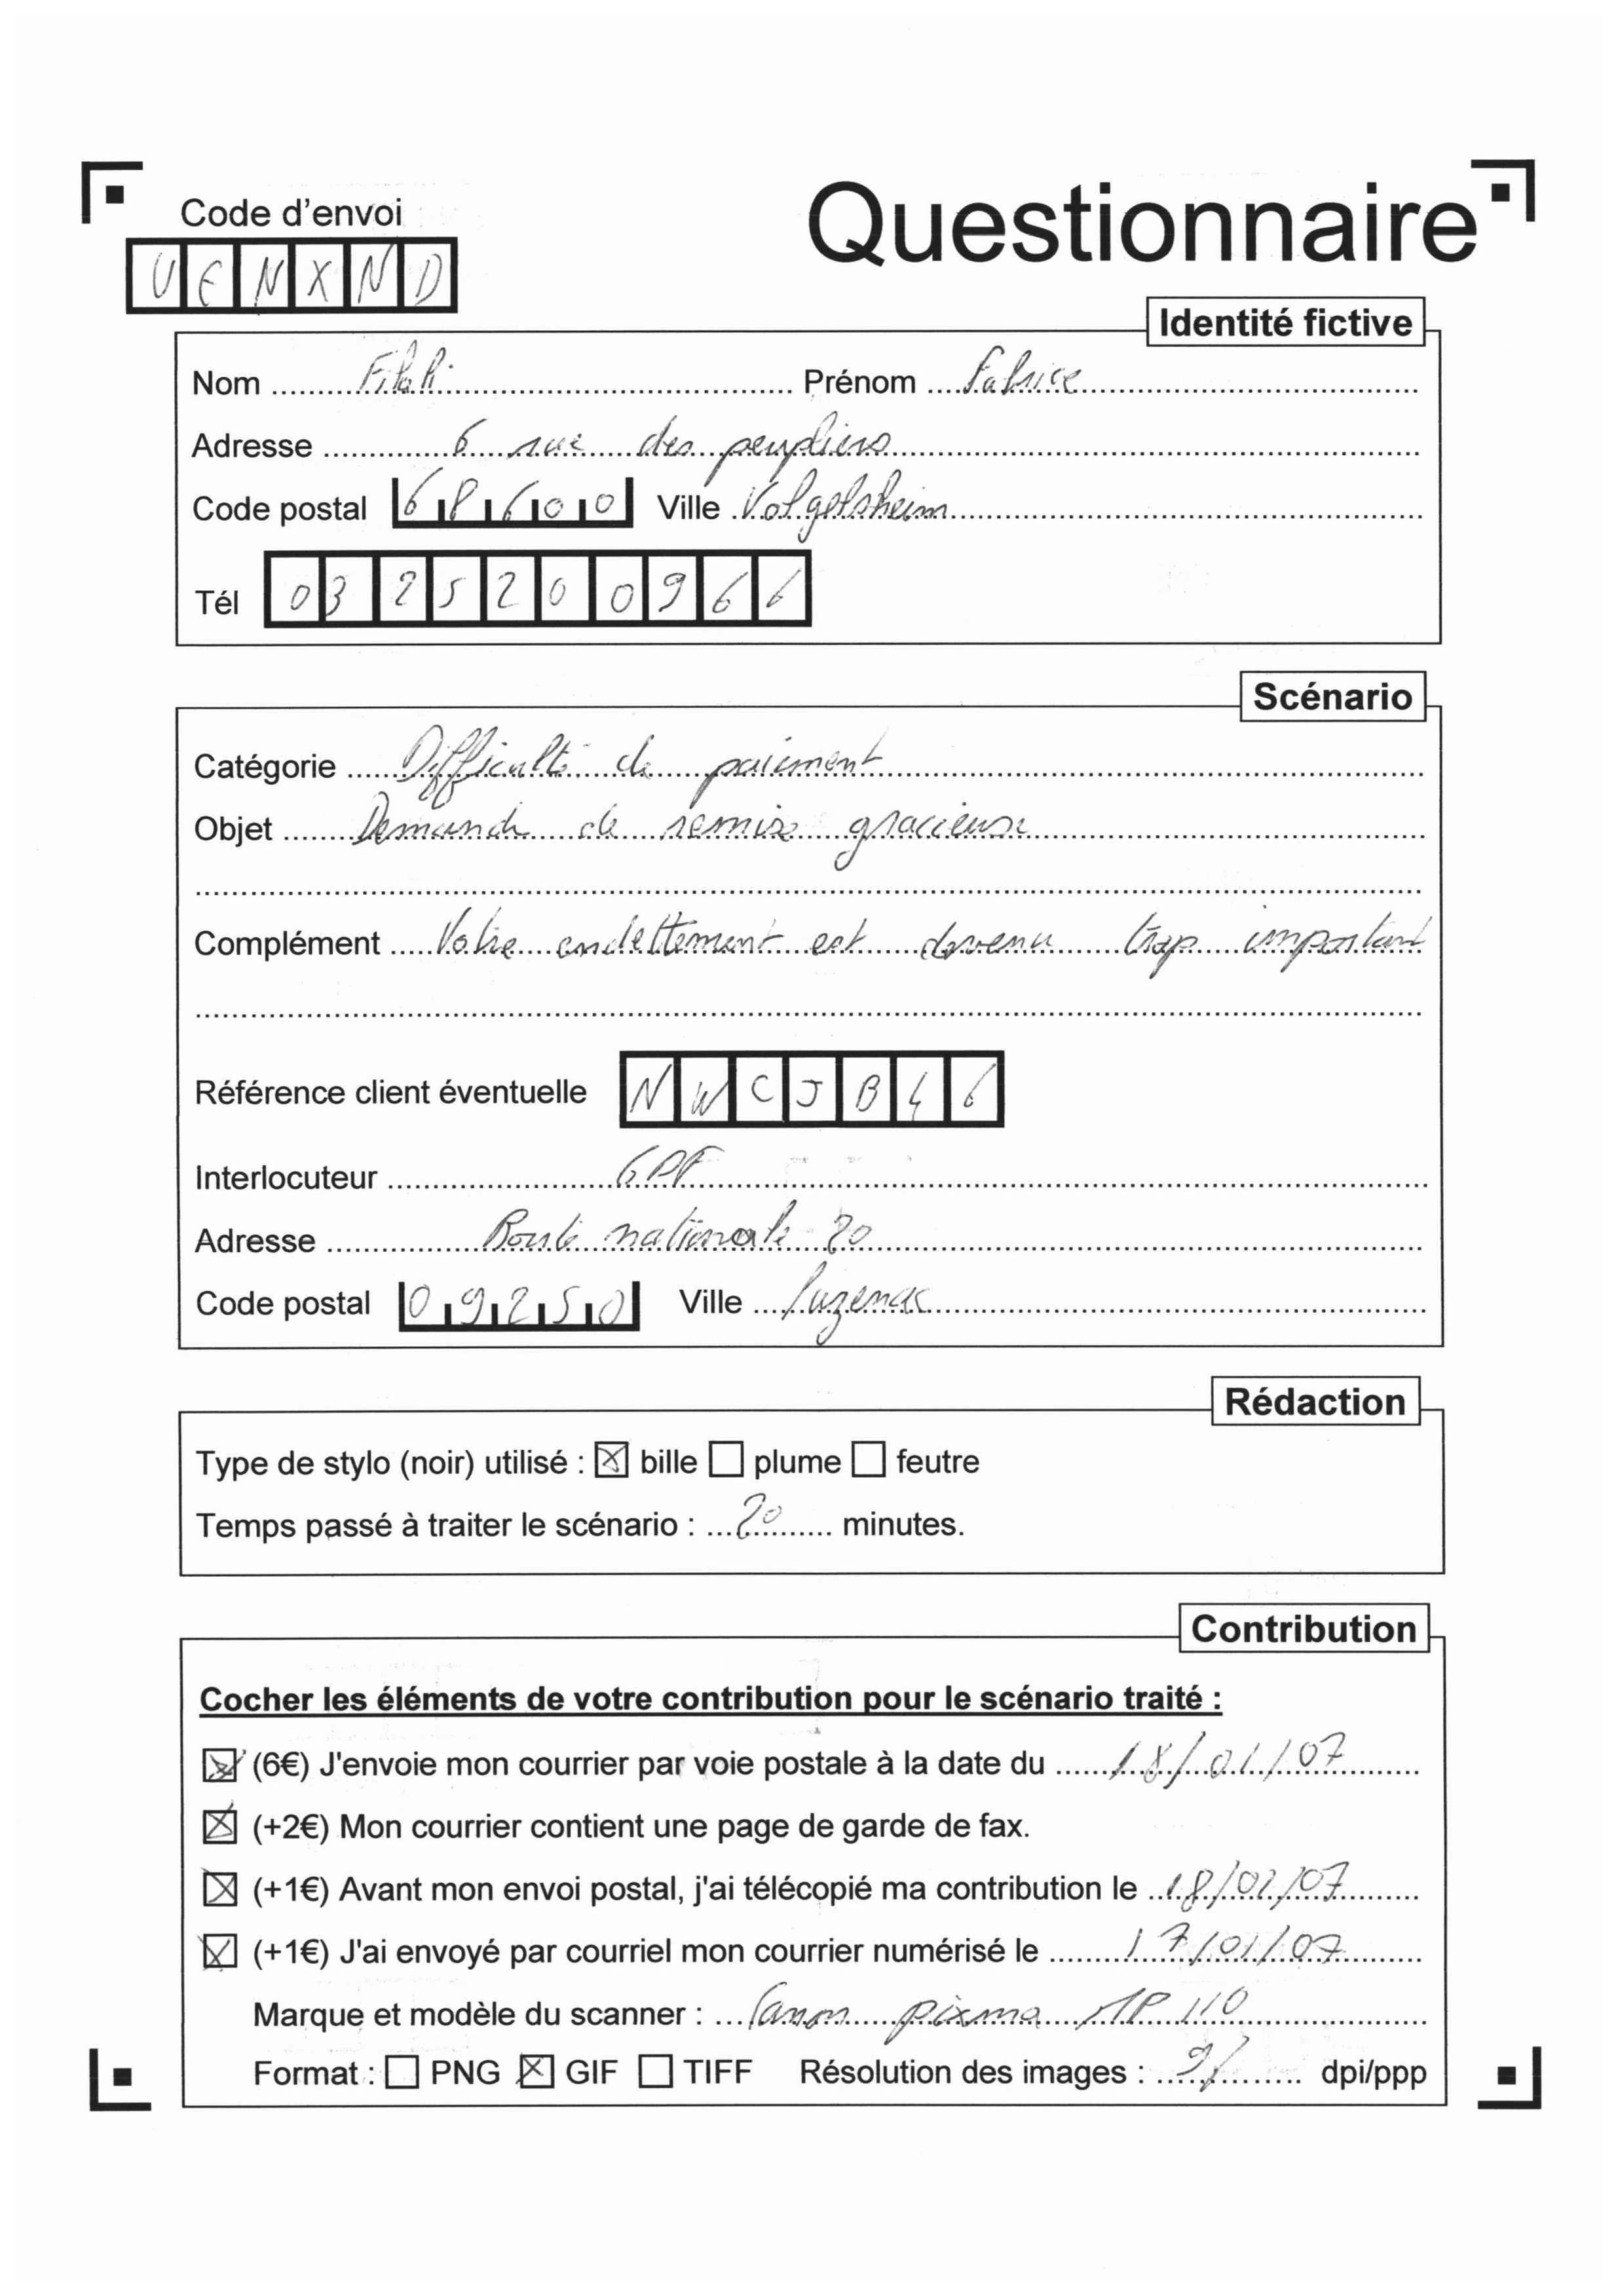 Code d'envoi
Questionnaire
V E N X N D
Identité fictive
Nom Filali Prénom Fabrice
Adresse 6 rue des peupliers
Code postal 68600 Ville Volgelsheim
Tél 03 25 20 09 66
Scénario
Catégorie Difficulté de paiement
Objet Demande de remise gracieuse
Complément Votre endettement est devenu trop important
Référence client éventuelle N W C J B 4 6
Interlocuteur
Adresse Route nationale 20
Code postal 09250 Ville Luzenac
Rédaction
Type de stylo (noir) utilisé : ☒ bille ☐ plume ☐ feutre
Temps passé à traiter le scénario : 20 minutes.
Contribution
Cocher les éléments de votre contribution pour le scénario traité :
☒ (6€) J'envoie mon courrier par voie postale à la date du 18/01/07
☒ (+2€) Mon courrier contient une page de garde de fax.
☒ (+1€) Avant mon envoi postal, j'ai télécopié ma contribution le 18/01/07
☒ (+1€) J'ai envoyé par courriel mon courrier numérisé le 17/01/07
Marque et modèle du scanner : Canon pixma MP 110
Format : ☐ PNG ☒ GIF ☐ TIFF Résolution des images : dpi/ppp